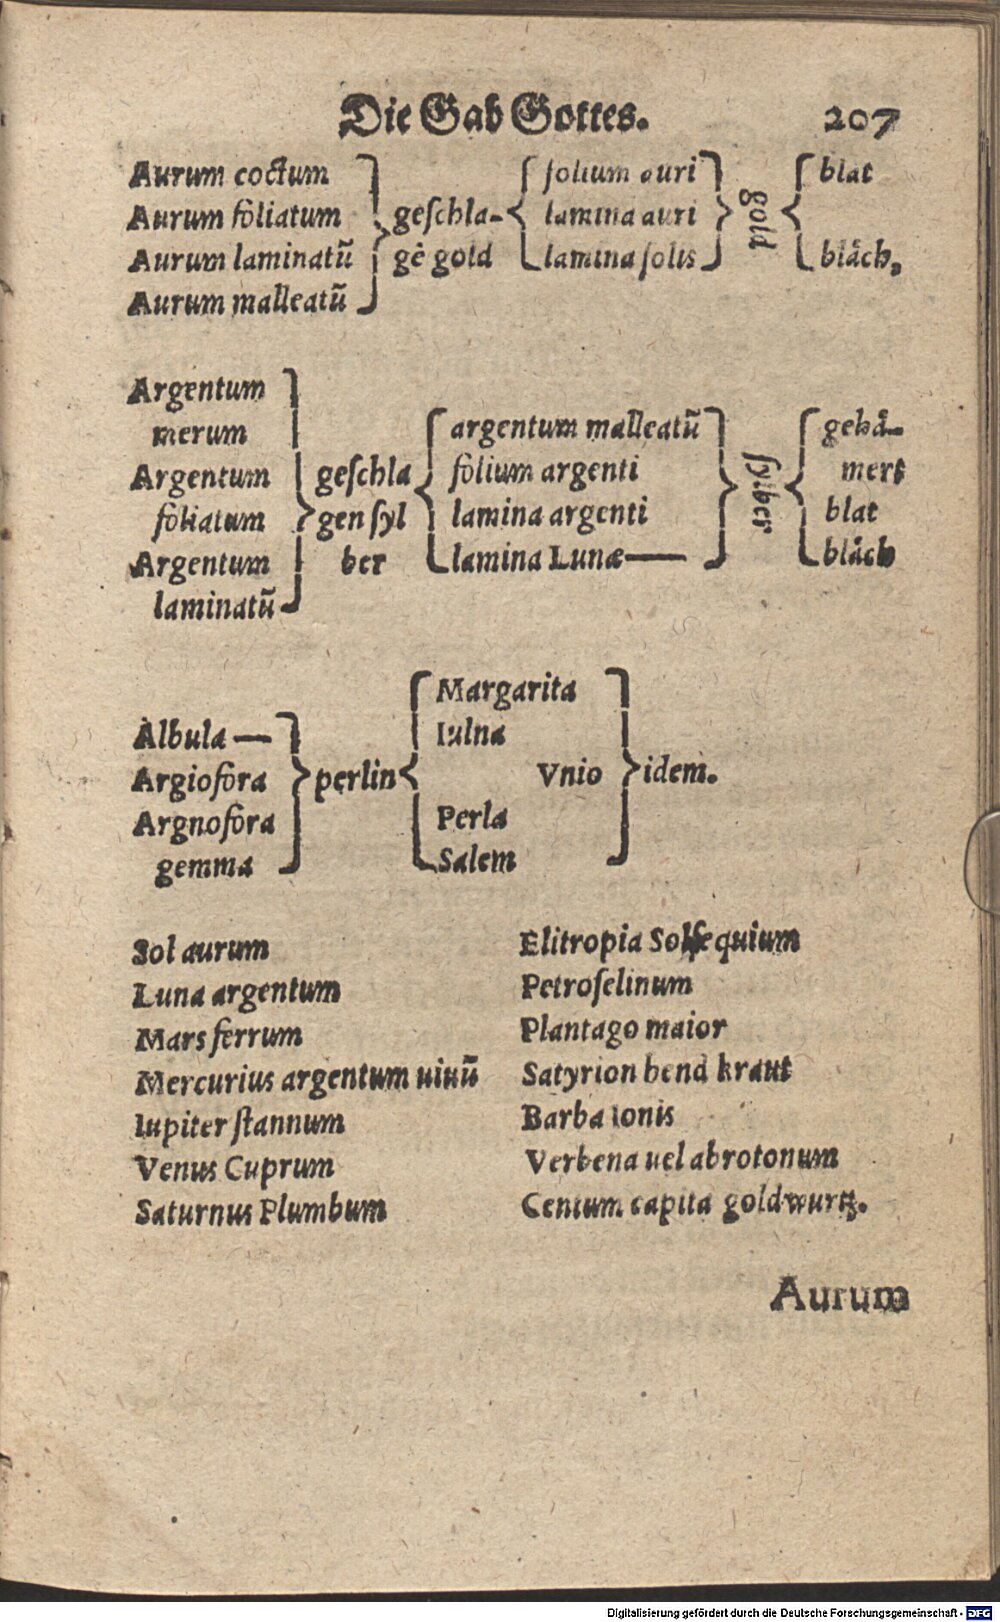 Die Gab Gottes. 207
Aurum coctum
Aurum foliatum
Aurum laminatū
Aurum malleatū
geschla-
gē gold
folium auri
lamina auri
lamina solis
gold
blat
bläch.
Argentum
merum
Argentum
foliatum
Argentum
laminatū
geschla
gen syl
ber
argentum malleatū
folium argenti
lamina argenti
lamina Lunæ
sylber
gehä-
mert
blat
bläch
Albula
Argiofora
Argnofora
gemma
perlin
Margarita
Iulna
Vnio
Perla
Salem
idem.
Sol aurum
Luna argentum
Mars ferrum
Mercurius argentum uiuū
Iupiter stannum
Venus Cuprum
Saturnus Plumbum
Elitropia Solsequium
Petroselinum
Plantago maior
Satyrion bend kraut
Barba Ionis
Verbena uel abrotonum
Centum capita goldwurtz.
Aurum
Digitalisierung gefördert durch die Deutsche Forschungsgemeinschaft - DFG